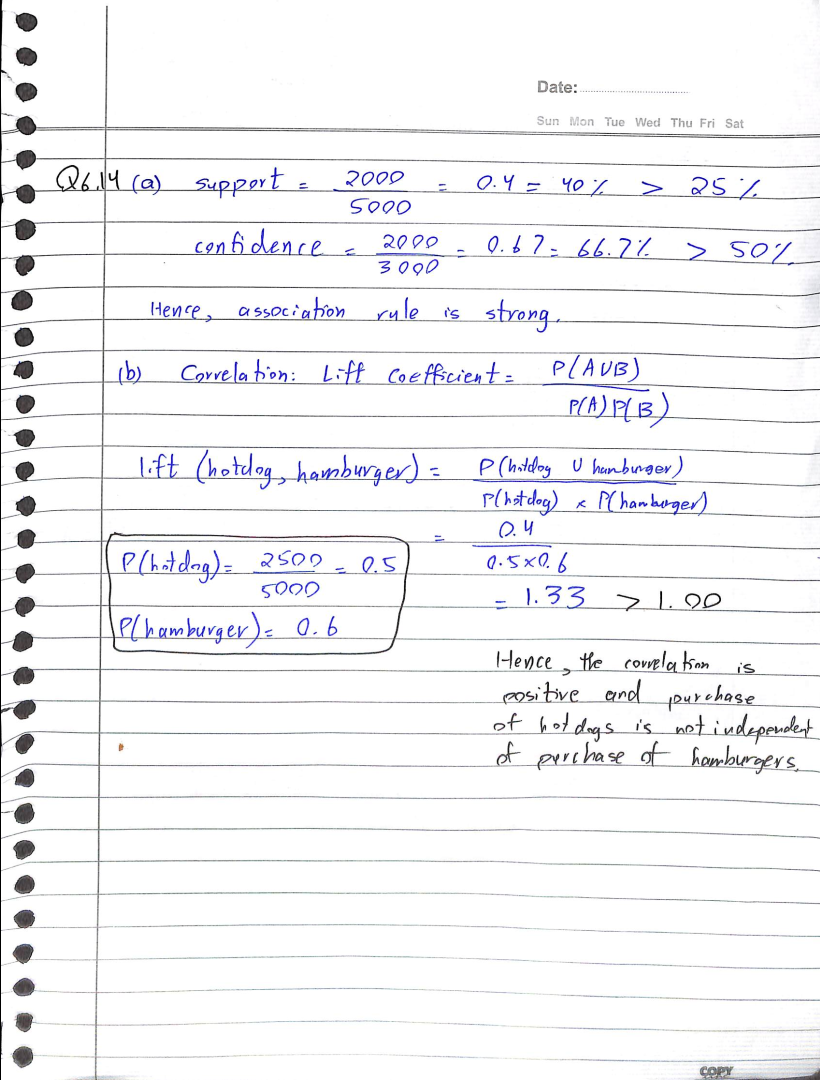 Date:
Sun Mon Tue Wed Thu Fri Sat
Q6.14 (a) support = 2000/5000 = 0.4 = 40% > 25%
confidence = 2000/3000 = 0.67 = 66.7% > 50%
Hence, association rule is strong.
(b) Correlation: Lift Coefficient = P(AUB)/P(A)P(B)
lift (hotdog, hamburger) = P(hotdog U hamburger)/P(hotdog) x P(hamburger)
= 0.4/0.5x0.6
P(hotdog) = 2500/5000 = 0.5
= 1.33 > 1.00
P(hamburger) = 0.6
Hence, the correlation is
positive and purchase
of hotdogs is not independent
of purchase of hamburgers.
COPY